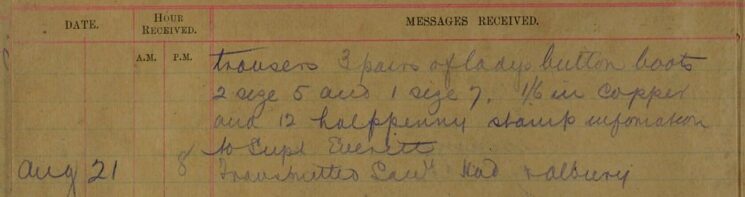 DATE. HOUR RECEIVED. MESSAGES RECEIVED.
A.M. P.M.
trousers 3 pairs of lady button boots
2 size 5 and 1 size 7. 1/6 in copper
and 12 halfpenny stamp infomation
to Supt Everett
Aug 21 8 Transmitted Saw Had